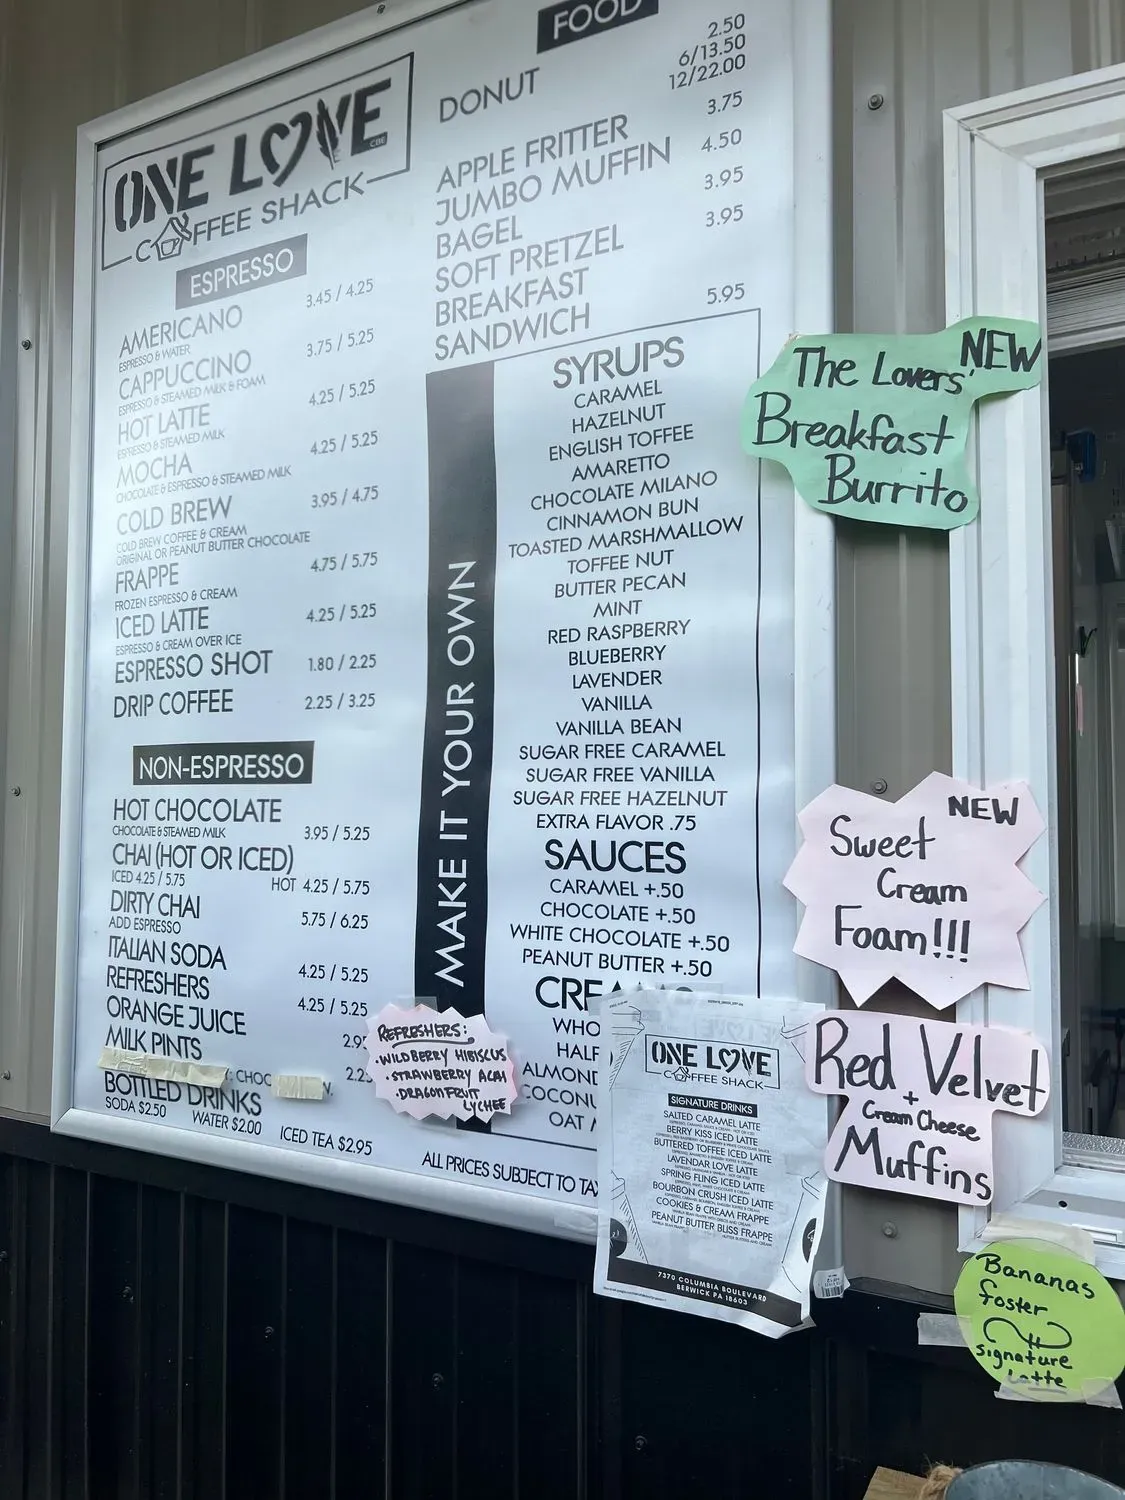 ONE LOVE
CBE
COFFEE SHACK
ESPRESSO
AMERICANO 3.45 / 4.25
ESPRESSO & WATER
CAPPUCCINO 3.75 / 5.25
ESPRESSO & STEAMED MILK & FOAM
HOT LATTE 4.25 / 5.25
ESPRESSO & STEAMED MILK
MOCHA 4.25 / 5.25
CHOCOLATE & ESPRESSO & STEAMED MILK
COLD BREW 3.95 / 4.75
COLD BREW COFFEE & CREAM
ORIGINAL OR PEANUT BUTTER CHOCOLATE
FRAPPE 4.75 / 5.75
FROZEN ESPRESSO & CREAM
ICED LATTE 4.25 / 5.25
ESPRESSO & CREAM OVER ICE
ESPRESSO SHOT 1.80 / 2.25
DRIP COFFEE 2.25 / 3.25
NON-ESPRESSO
HOT CHOCOLATE
CHOCOLATE & STEAMED MILK 3.95 / 5.25
CHAI (HOT OR ICED)
ICED 4.25 / 5.75 HOT 4.25 / 5.75
DIRTY CHAI 5.75 / 6.25
ADD ESPRESSO
ITALIAN SODA 4.25 / 5.25
REFRESHERS 4.25 / 5.25
ORANGE JUICE 2.95
MILK PINTS 2.25
CHOC
BOTTLED DRINKS
SODA $2.50 WATER $2.00 ICED TEA $2.95
FOOD
DONUT 2.50
6/13.50
12/22.00
APPLE FRITTER 3.75
JUMBO MUFFIN 4.50
BAGEL 3.95
SOFT PRETZEL 3.95
BREAKFAST
SANDWICH 5.95
MAKE IT YOUR OWN
SYRUPS
CARAMEL
HAZELNUT
ENGLISH TOFFEE
AMARETTO
CHOCOLATE MILANO
CINNAMON BUN
TOASTED MARSHMALLOW
TOFFEE NUT
BUTTER PECAN
MINT
RED RASPBERRY
BLUEBERRY
LAVENDER
VANILLA
VANILLA BEAN
SUGAR FREE CARAMEL
SUGAR FREE VANILLA
SUGAR FREE HAZELNUT
EXTRA FLAVOR .75
SAUCES
CARAMEL +.50
CHOCOLATE +.50
WHITE CHOCOLATE +.50
PEANUT BUTTER +.50
CREA
WHO
HALF
ALMOND
COCONU
OAT
ALL PRICES SUBJECT TO TA
REFRESHERS:
• WILDBERRY HIBISCUS
• STRAWBERRY ACAI
• DRAGONFRUIT
LYCHEE
ONE LOVE
COFFEE SHACK
SIGNATURE DRINKS
SALTED CARAMEL LATTE
BERRY KISS ICED LATTE
BUTTERED TOFFEE ICED LATTE
LAVENDAR LOVE LATTE
SPRING FLING ICED LATTE
BOURBON CRUSH ICED LATTE
COOKIES & CREAM FRAPPE
PEANUT BUTTER BLISS FRAPPE
7370 COLUMBIA BOULEVARD
BERWICK PA 18603
NEW
The Lovers'
Breakfast
Burrito
NEW
Sweet
Cream
Foam!!!
Red Velvet
+
Cream Cheese
Muffins
Bananas
foster
signature
Latte